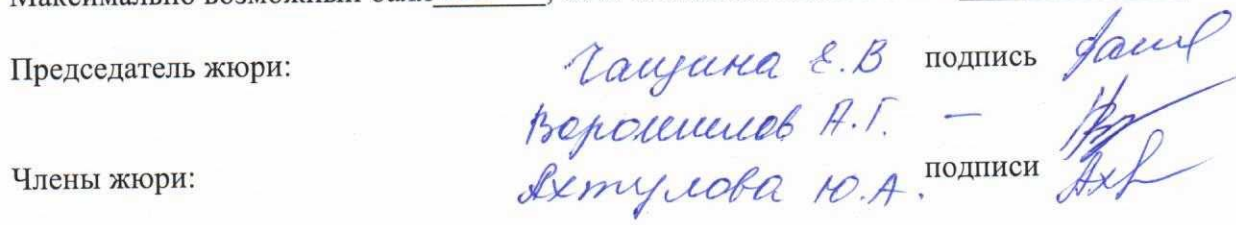 Максимально возможный балл
Председатель жюри: Чащина Е.В подпись
Ворошилов А.Г. –
Члены жюри: Ахтулова Ю.А. подписи